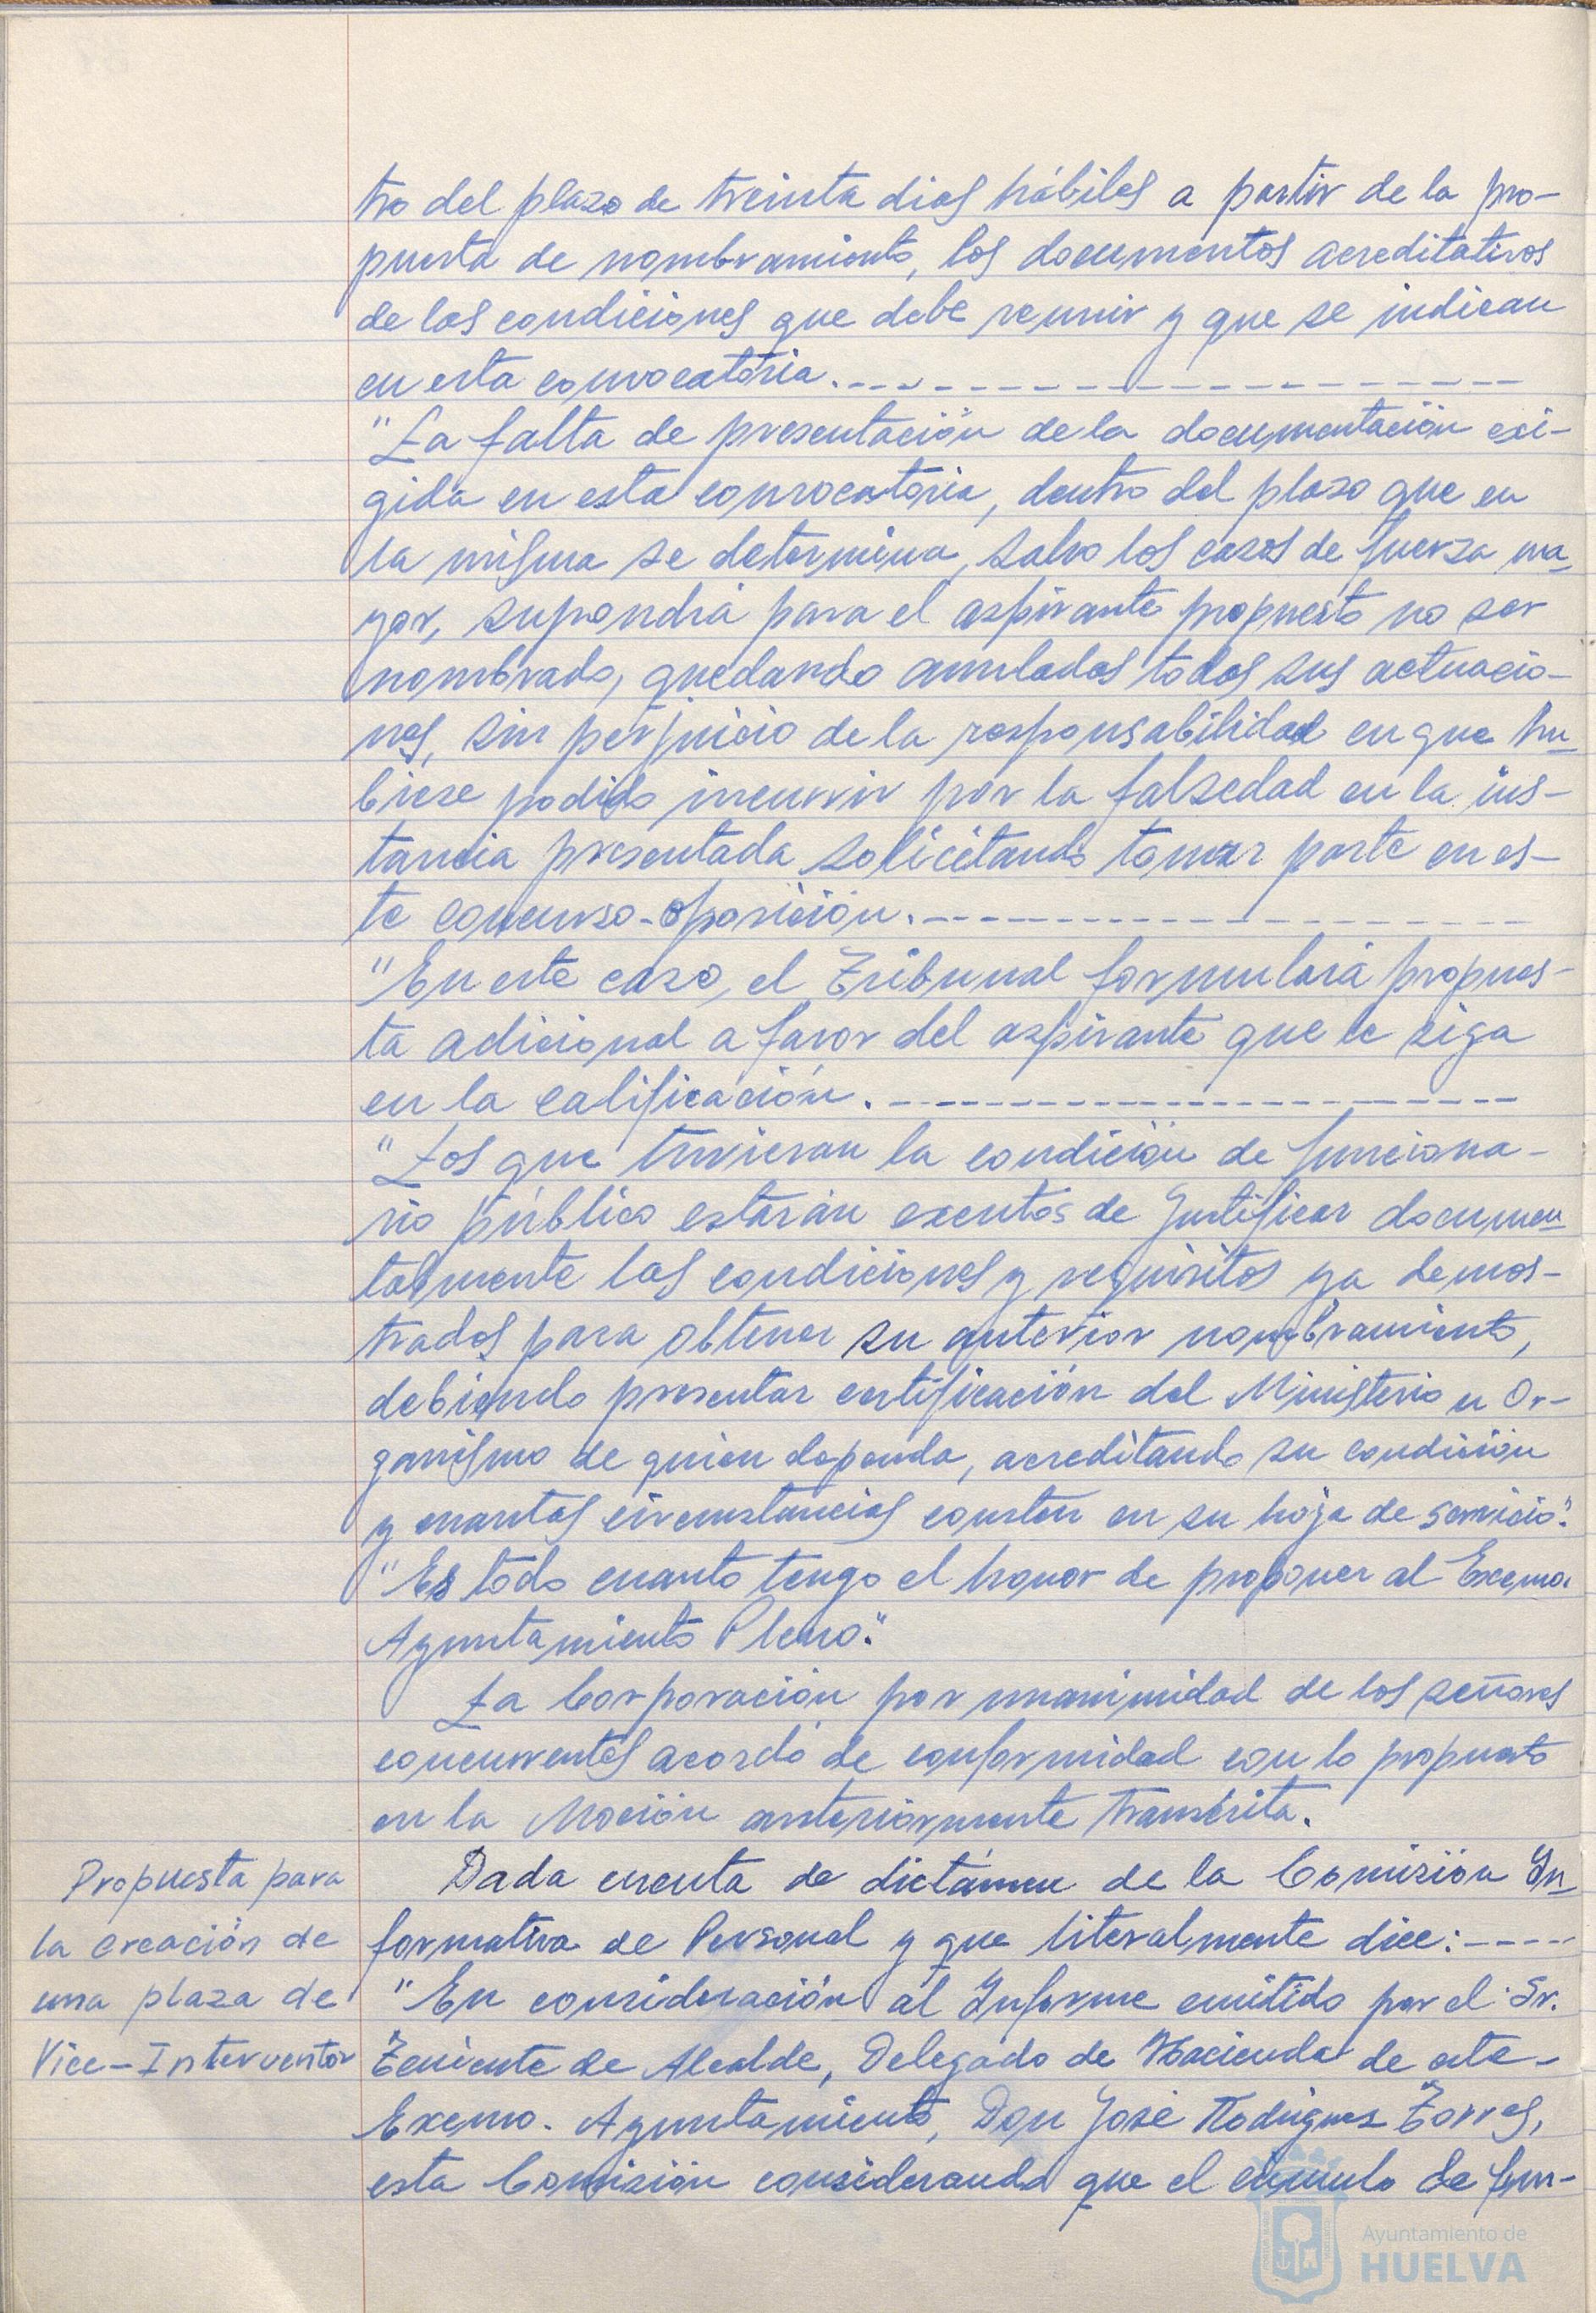 tro del plazo de treinta dias hábiles a partir de la pro-
puesta de nombramiento, los documentos acreditativos
de las condiciones que debe reunir y que se indican
en esta convocatoria.
"La falta de presentación de la documentación exi-
gida en esta convocatoria, dentro del plazo que en
la misma se determina, salvo los casos de fuerza ma-
yor, supondrá para el aspirante propuesto no ser
nombrado, quedando anuladas todas sus actuacio-
nes, sin perjuicio de la responsabilidad en que hu-
biese podido incurrir por la falsedad en la ins-
tancia presentada solicitando tomar parte en es-
te concurso-oposición.
"En este caso, el Tribunal formulará propues-
ta adicional a favor del aspirante que le siga
en la calificación.
"Los que tuvieran la condición de funciona-
rio público estarán exentos de justificar documen-
talmente las condiciones y requisitos ya demos-
trados para obtener su anterior nombramiento,
debiendo presentar certificación del Ministerio u Or-
ganismo de quien dependa, acreditando su condición
y cuantas circunstancias consten en su hoja de servicio".
"Es todo cuanto tengo el honor de proponer al Excmo.
Ayuntamiento Pleno".
La Corporación por unanimidad de los señores
concurrentes acordó de conformidad con lo propuesto
en la Moción anteriormente transcrita.
Propuesta para
la creación de
una plaza de
Vice-Interventor
Dada cuenta de dictámen de la Comisión In-
formativa de Personal y que literalmente dice:
"En consideración al Informe emitido por el Sr.
Teniente de Alcalde, Delegado de Hacienda de este
Excmo. Ayuntamiento, Don José Rodriguez Torres,
esta Comisión considerando que el cúmulo de fun-
Ayuntamiento de
HUELVA